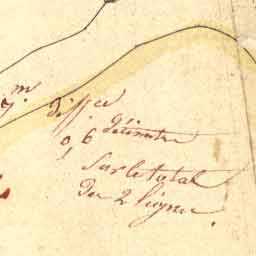 7.m diff.ce
0,6 décimètre
Sur le total
des 2 lignes.